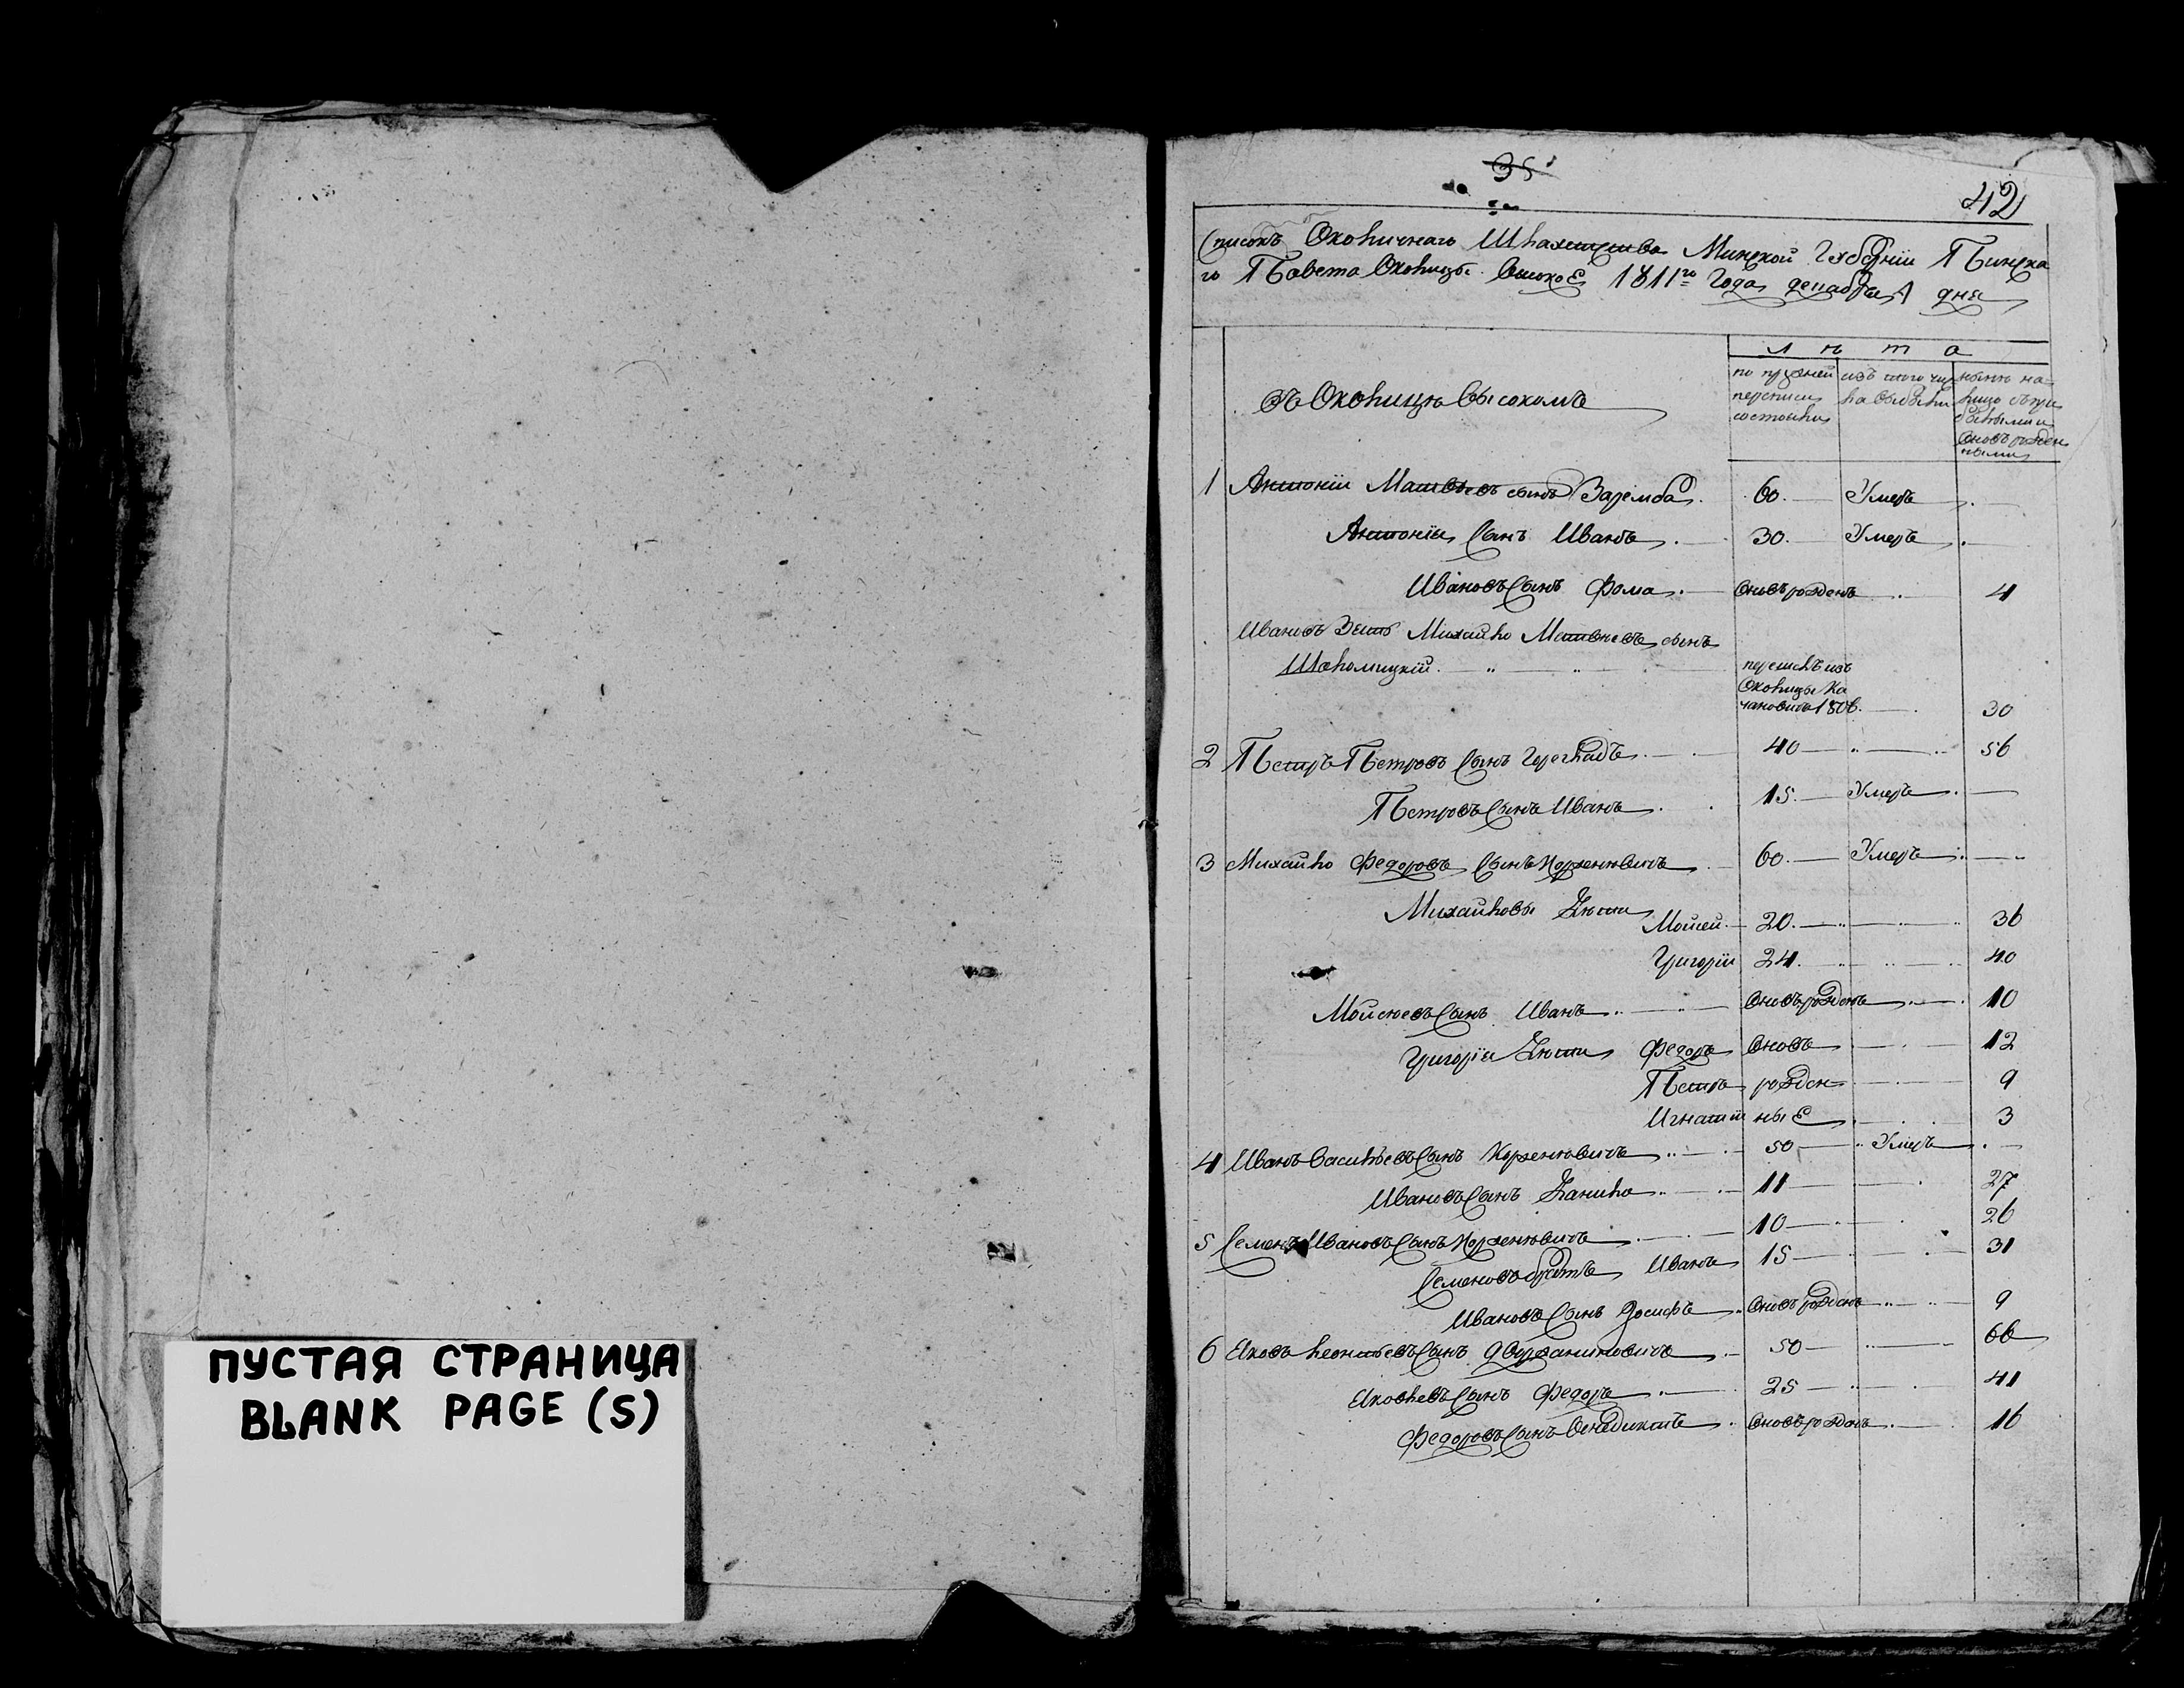 ПУСТАЯ СТРАНИЦА
BLANK PAGE (S)
35
42
Списокъ Околичнаго Шляхетства Минской Губерніи Пинска
го Повета Околицы Высокое 1811го Года декабря 1 дня
Лѣта
въ Околицѣ Высокомъ
по прежней переписи состояли
изъ того числа выбыли
нынѣ на лицо съ прибылыми и вновь рожденными
1 Антоній Матвѣевъ сынъ Заремба 60. Умеръ
Антонія Сынъ Иванъ 30. Умеръ
Ивановъ Сынъ Фома вновь рожденъ 4
Ивановъ Зять Михайло Матвѣевъ сынъ
Шоломицкій перешелъ изъ
Околицы Ка
чановичъ 1806. 30
2 Петръ Петровъ Сынъ 40 56
Петровъ Сынъ Иванъ 15. Умеръ
3 Михайло Федоровъ Сынъ Корженѣвичъ 60. Умеръ
Михайловы Дѣти
Мойсей 20. 36
Григорій 24. 40
Мойсѣевъ Сынъ Иванъ вновь рожденъ 10
Григорія Дѣти Федоръ вновь 12
Петръ рожден 9
Игнатій ные 3
4 Иванъ Васильевъ Сынъ Корженѣвичъ 50 Умеръ
Ивановъ Сынъ Данило 11 27
5 Семенъ Ивановъ Сынъ Корженѣвичъ 10 26
Семеновъ братъ Иванъ 15 31
Ивановъ Сынъ Іосифъ вновь рожденъ 9
6 Яковъ Леонтьевъ Сынъ 50 66
Яковлевъ Сынъ Федоръ 25 41
Федоровъ Сынъ Венедиктъ вновь рожденъ 16